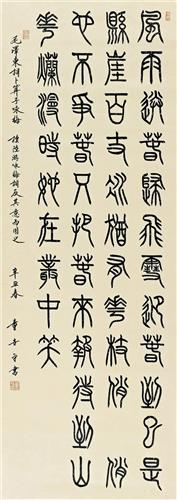 風雨送春歸飛雪迎春到已是
縣崖百丈冰猶有華枝俏俏
也不爭春只把春來報待到山
華爛漫時她在叢中笑
毛澤東詞卜算子咏梅 讀陸游咏梅詞反其意而用之 辛丑春 書